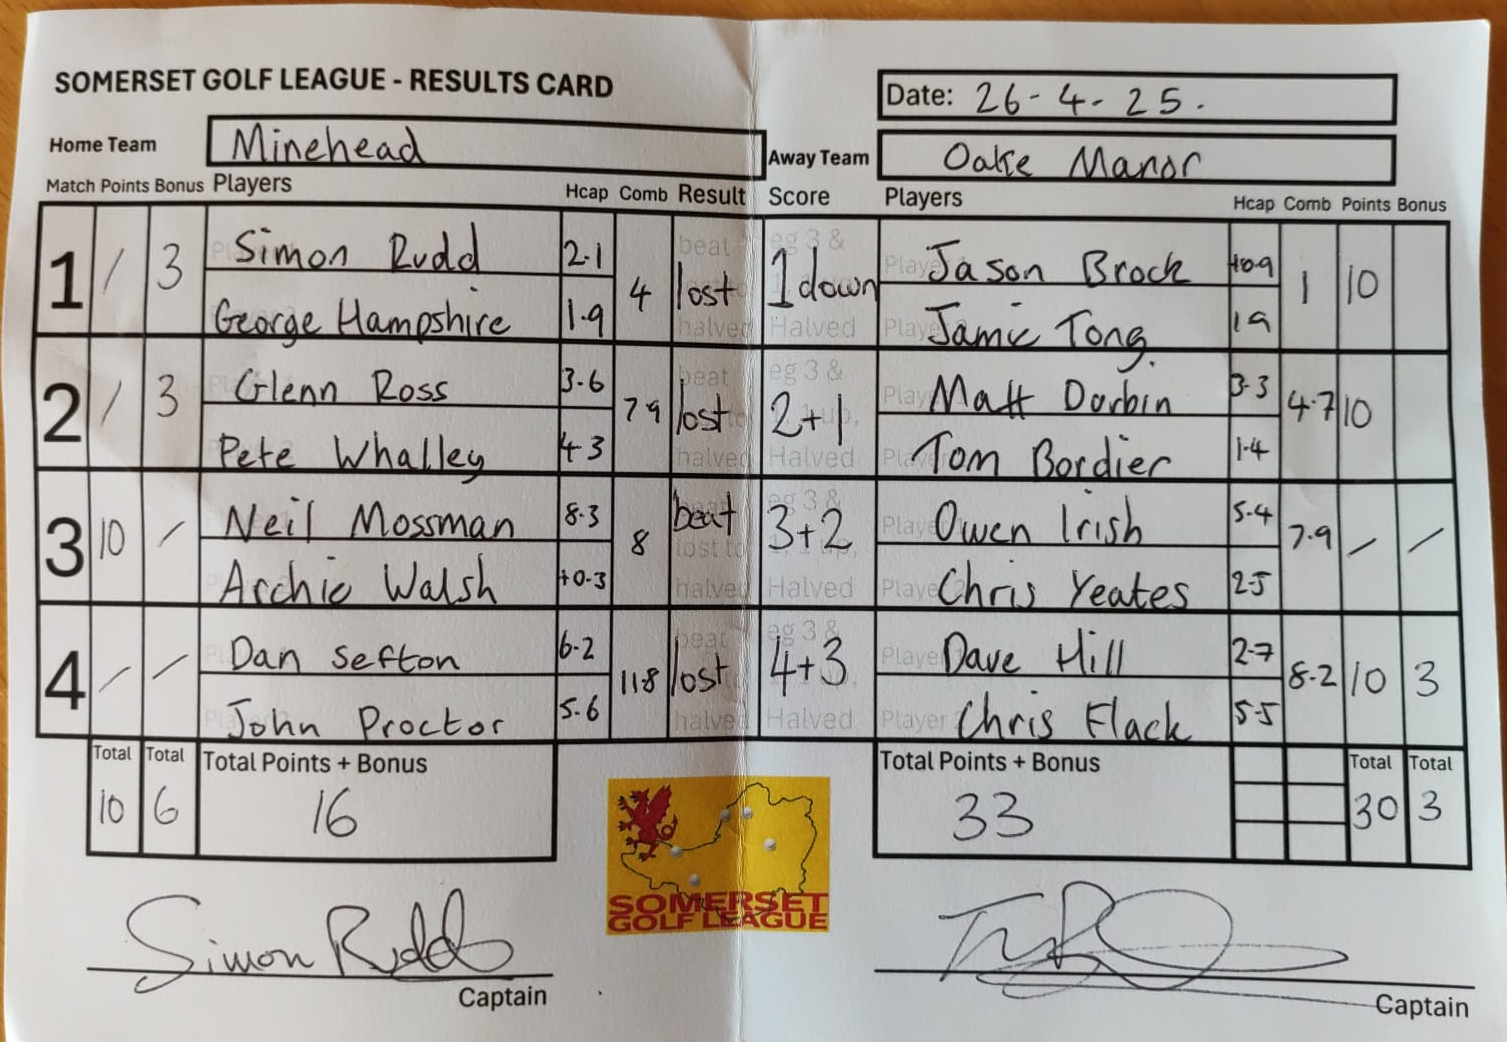 SOMERSET GOLF LEAGUE - RESULTS CARD
Date: 26-4-25.
Home Team Minehead Away Team Oake Manor
Match Points Bonus Players Hcap Comb Result Score Players Hcap Comb Points Bonus
1 / 3 Simon Rudd 2.1 4 lost 1 down Jason Brock +0.9 1 10
George Hampshire 1.9 Jamie Tong 1.9
2 / 3 Glenn Ross 3.6 7.9 lost 2+1 Matt Dorbin 3.3 4.7 10
Pete Whalley 4.3 Tom Bordier 1.4
3 10 / Neil Mossman 8.3 8 beat 3+2 Owen Irish 5.4 7.9 / /
Archie Walsh +0.3 Chris Yeates 2.5
4 / / Dan Sefton 6.2 11.8 lost 4+3 Dave Hill 2.7 8.2 10 3
John Proctor 5.6 Chris Flack 5.5
Total Total Total Points + Bonus Total Points + Bonus Total Total
10 6 16 33 30 3
SOMERSET
GOLF LEAGUE
Simon Rudd
Captain Captain